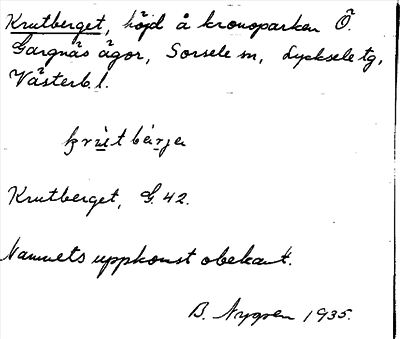 Krutberget, höjd å kronoparken Ö.
Gargnäs ägor, Sorsele sn, Lycksele tg,
Västerb. l.
krùtbærje
Krutberget, G. 42.
Namnets uppkomst obekant.
B. Nygren 1935.